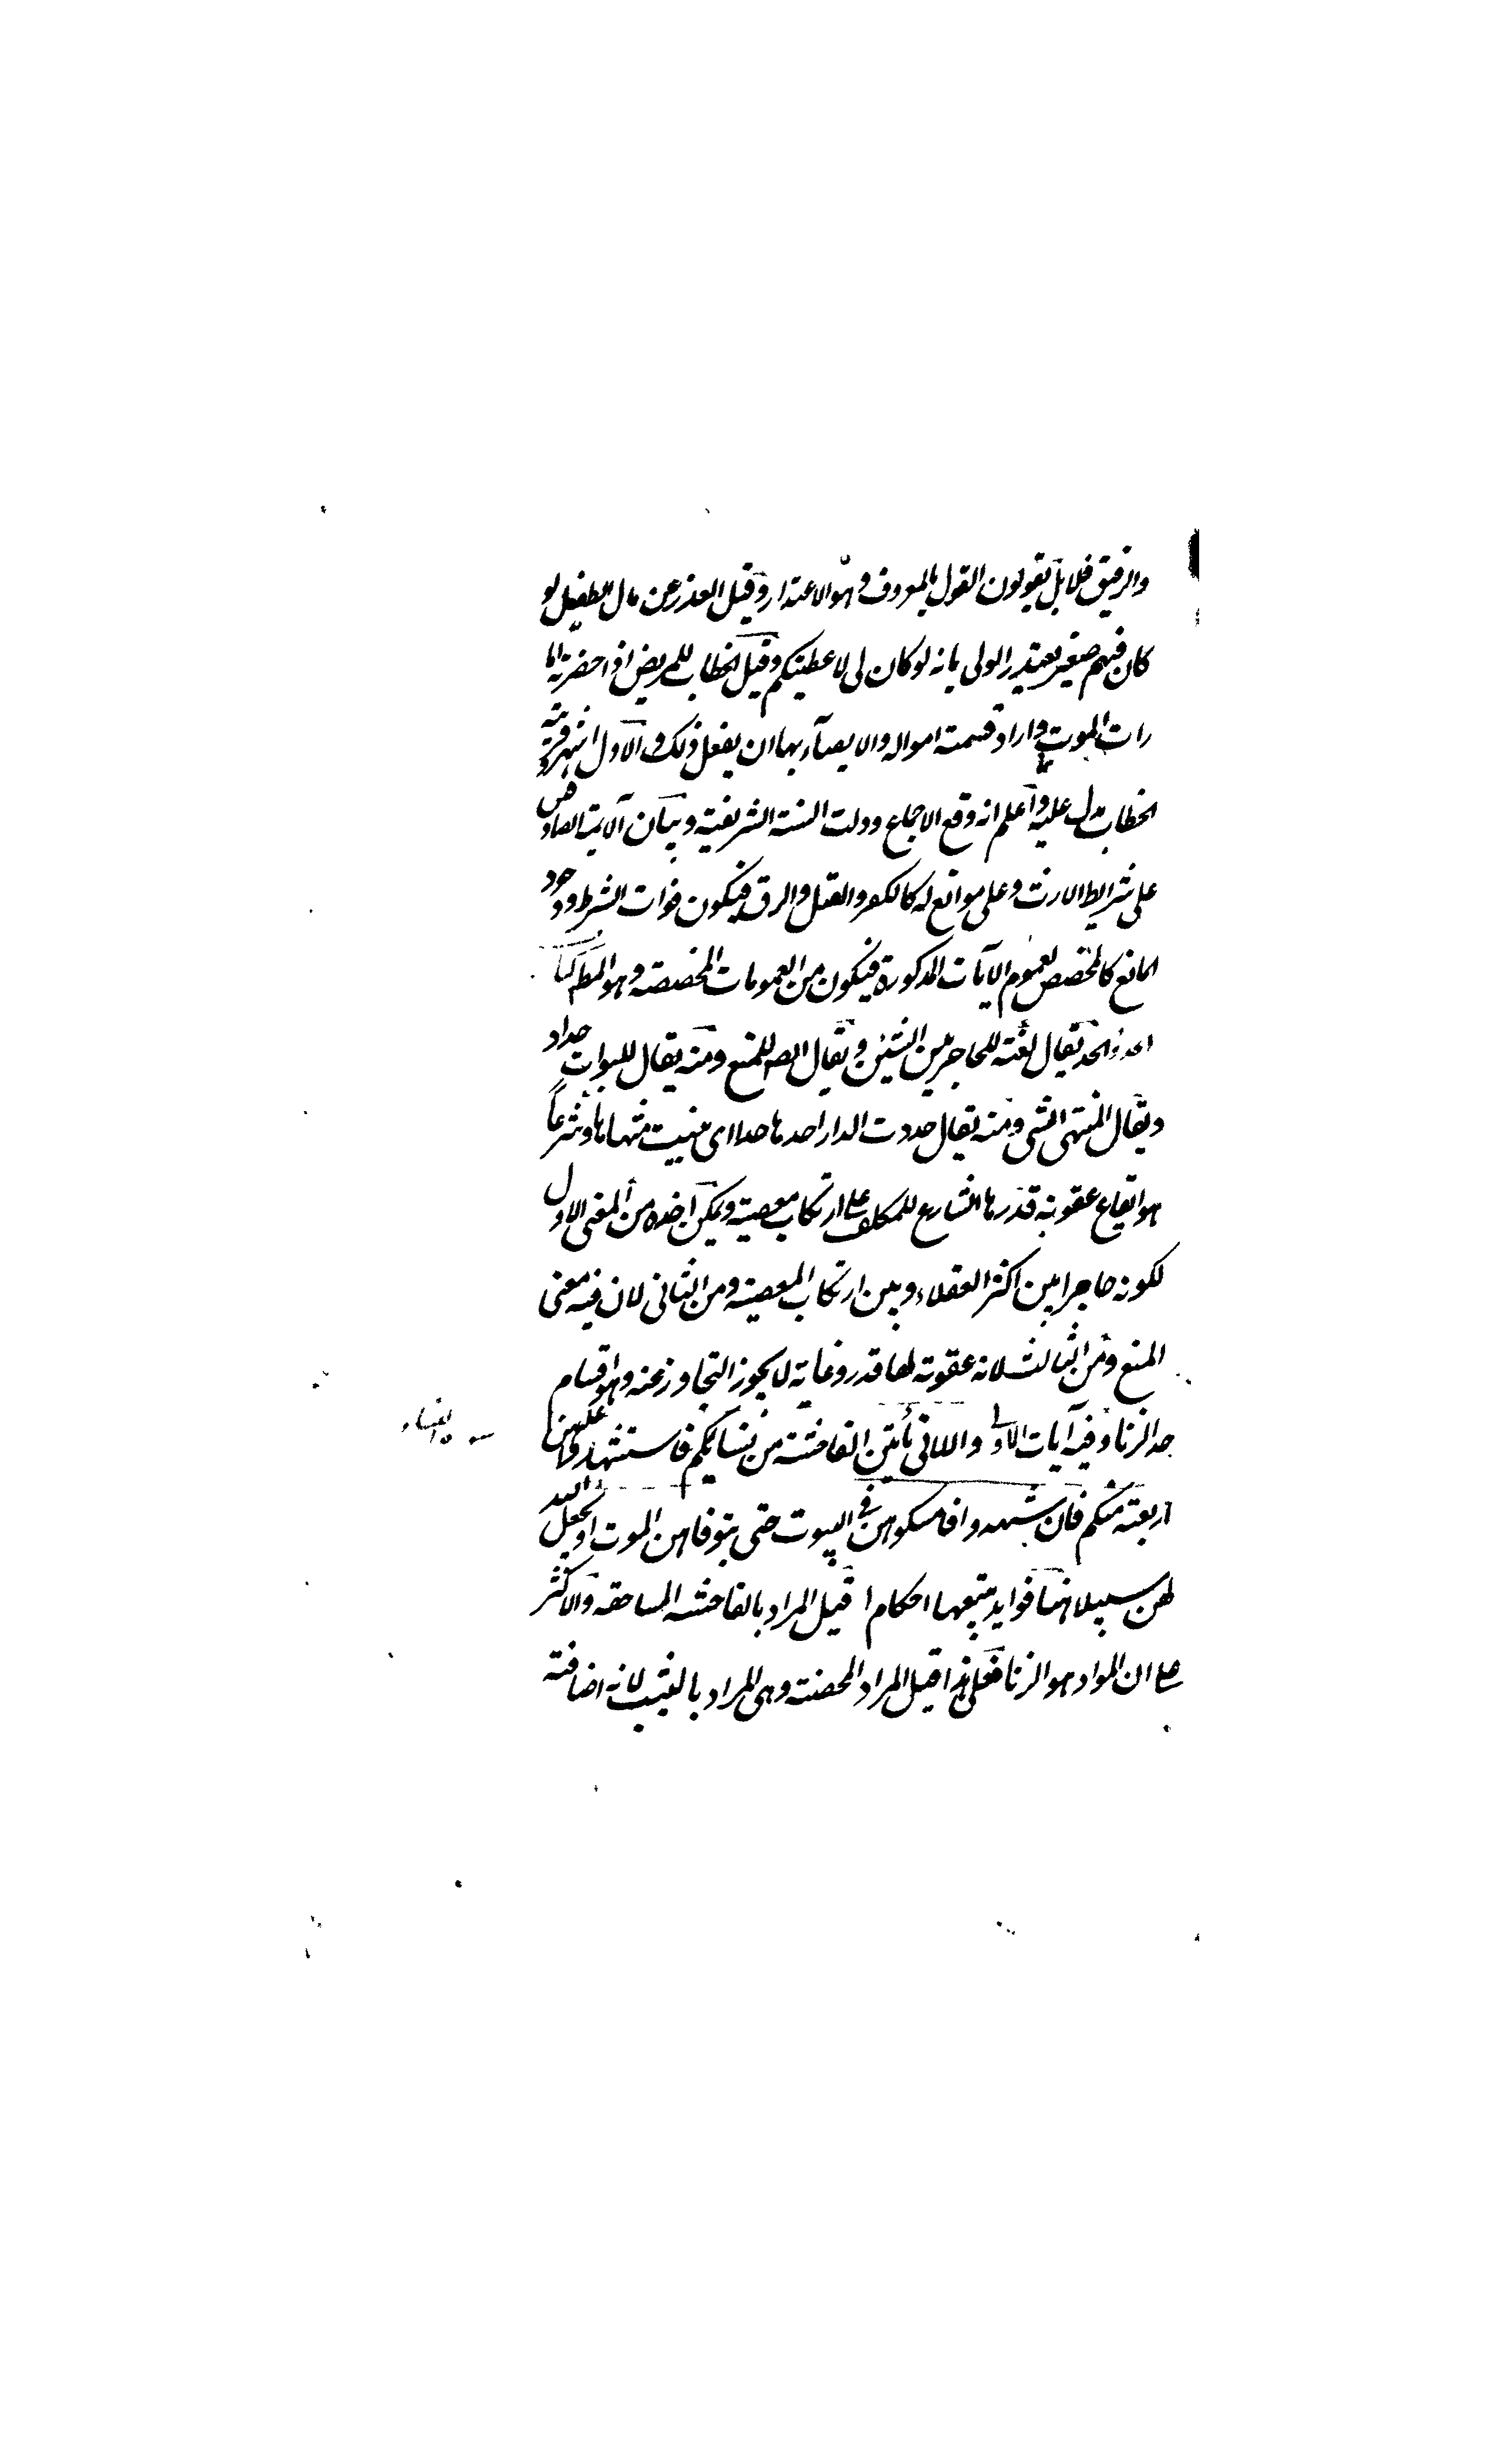 والرقيق فلا بل يقولون القول بالمعروف وهو الاعتذار وقيل العذر عن مال الطفل لو
كان فيهم صغير يعتذر الولى بانه لو كان لى لاعطيتكم وقيل الخطاب للمريض اذا حضرته اما
رات الموت واراد قسمة امواله والايصآء بها ان يفعل ذلك والاول اشهر وقرينة
الخطاب يدل عليه واعلم انه وقع الاجماع ودلت السنة الشريفة وبيان الآية
على شرايط الارث وعلى موانع له كالكفر والقتل والرق فيكون فوات الشرط ووجود
المانع كالمخصص لعموم الآيات المذكورة فيكون من العمومات المخصصة وهو المط كتاب
الحدود الحد يقال لغة للحاجز بين الشيئين ويقال ايضا للمنع ومنه يقال للبواب حداد
ويقال لمنتهى الشى ومنه يقال حددت الدار احدها حدا اى بينت منتهاها وشرعاً
هو ايقاع عقوبة قدرها الشارع للمكلف على ارتكاب معصية ويمكن اخذه من المعنى الاول
لكونه حاجزا بين اكثر العقلاء وبين ارتكاب المعصية ومن الثانى لان فيه معنى
المنع ومن الثالث لانه عقوبة لها قدر وغاية لا يجوز التجاوز عنه وهو اقسام
حد الزنا وفيه آيات الاولى واللاتى يأتين الفاحشة من نسايكم فاستشهدوا عليهن
النساء
اربعة منكم فان شهدوا فامسكوهن فى البيوت حتى يتوفاهن الموت او يجعل الله
لهن سبيلا هنا فوايد يتبعها احكام ا قيل المراد بالفاحشة المساحقة والاكثر
على ان المراد هو الزنا فعلى هذا قيل المراد المحصنة وهى المراد بالثيب لانه اضافة